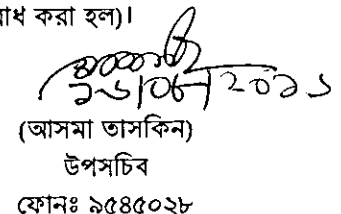 রোধ করা হল)।
২৬|০৮|২০২১
(আসমা তাসকিন)
উপসচিব
ফোনঃ ৯৫৪৫০২৮